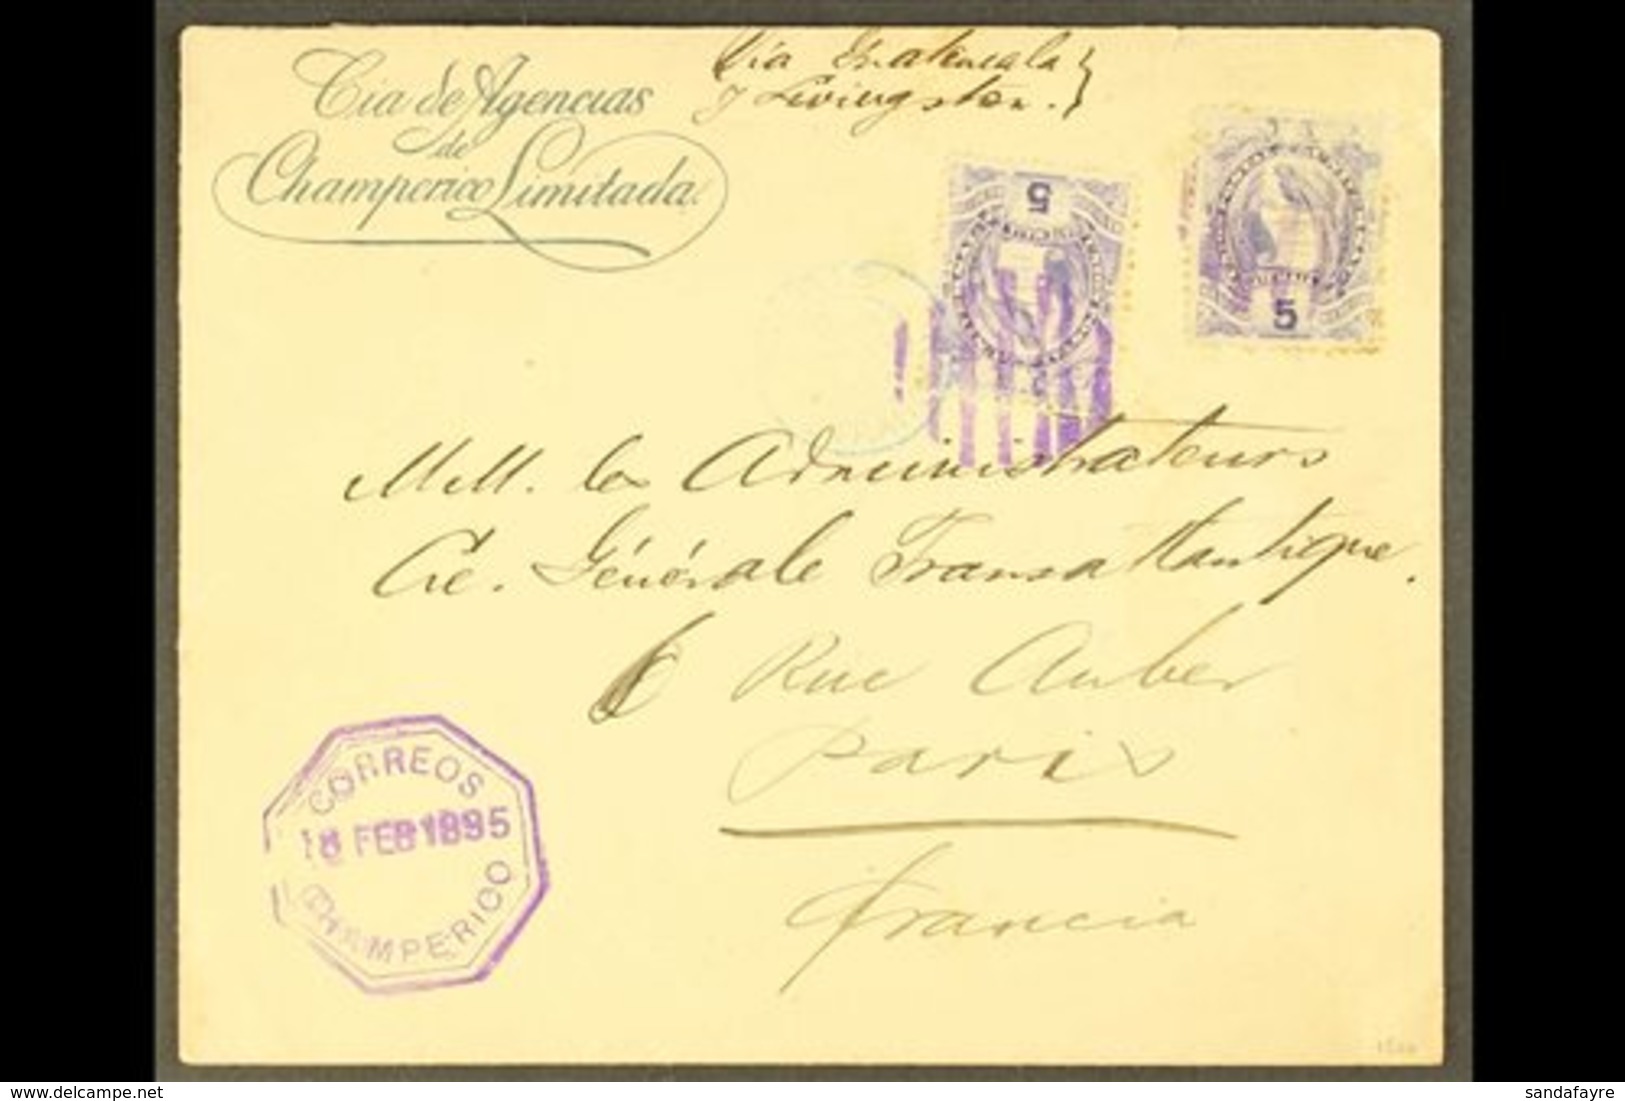 Cia de Agencias
de
Champerico Limitada.
Via Guatemala
y Livingston.
5
5
MM. les Administrateurs
Cie. Générale Transatlantique.
6 Rue Auber
Paris
Francia
CORREOS
18 FEB 1895
CHAMPERICO
sandafayre